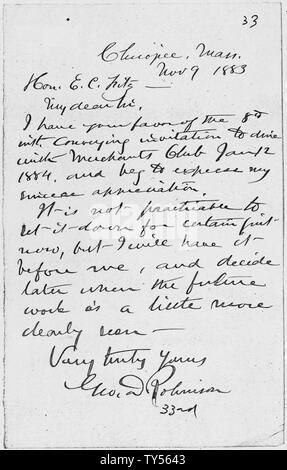 33
Chicopee, Mass.
Nov 9 1883
Hon. E. C. Fitz —
My dear Sir,
I have your favor of the 8th
inst. conveying invitation to dine
with Merchants Club Jan 12
1884, and beg to express my
sincere appreciation.
It is not practicable to
set it down for certain just
now, but I will have it
before me, and decide
later when the future
work is a little more
clearly seen —
Very truly yours
Geo. D. Robinson
33rd
alamy
alamy
TY5643